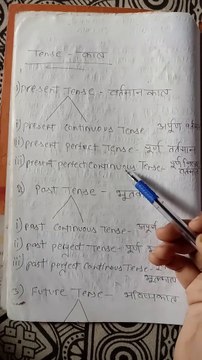 Tense - काल
1) present Tense - वर्तमान काल
i) present continuous Tense - अपूर्ण
ii) present perfect Tense - पूर्ण वर्तमान
iii) present perfect continuous Tense - पूर्ण
2) Past Tense -
i) past continuous Tense - अपूर्ण
ii) past perfect Tense - पूर्ण
iii) past perfect continuous Tense -
भूतकाल
3) Future Tense - भविष्यकाल